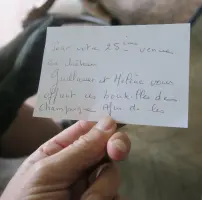 pour votre 25ième venue
au château
Guillaume et Hélène vous
offrent ces bouteilles de
Champagne afin de les